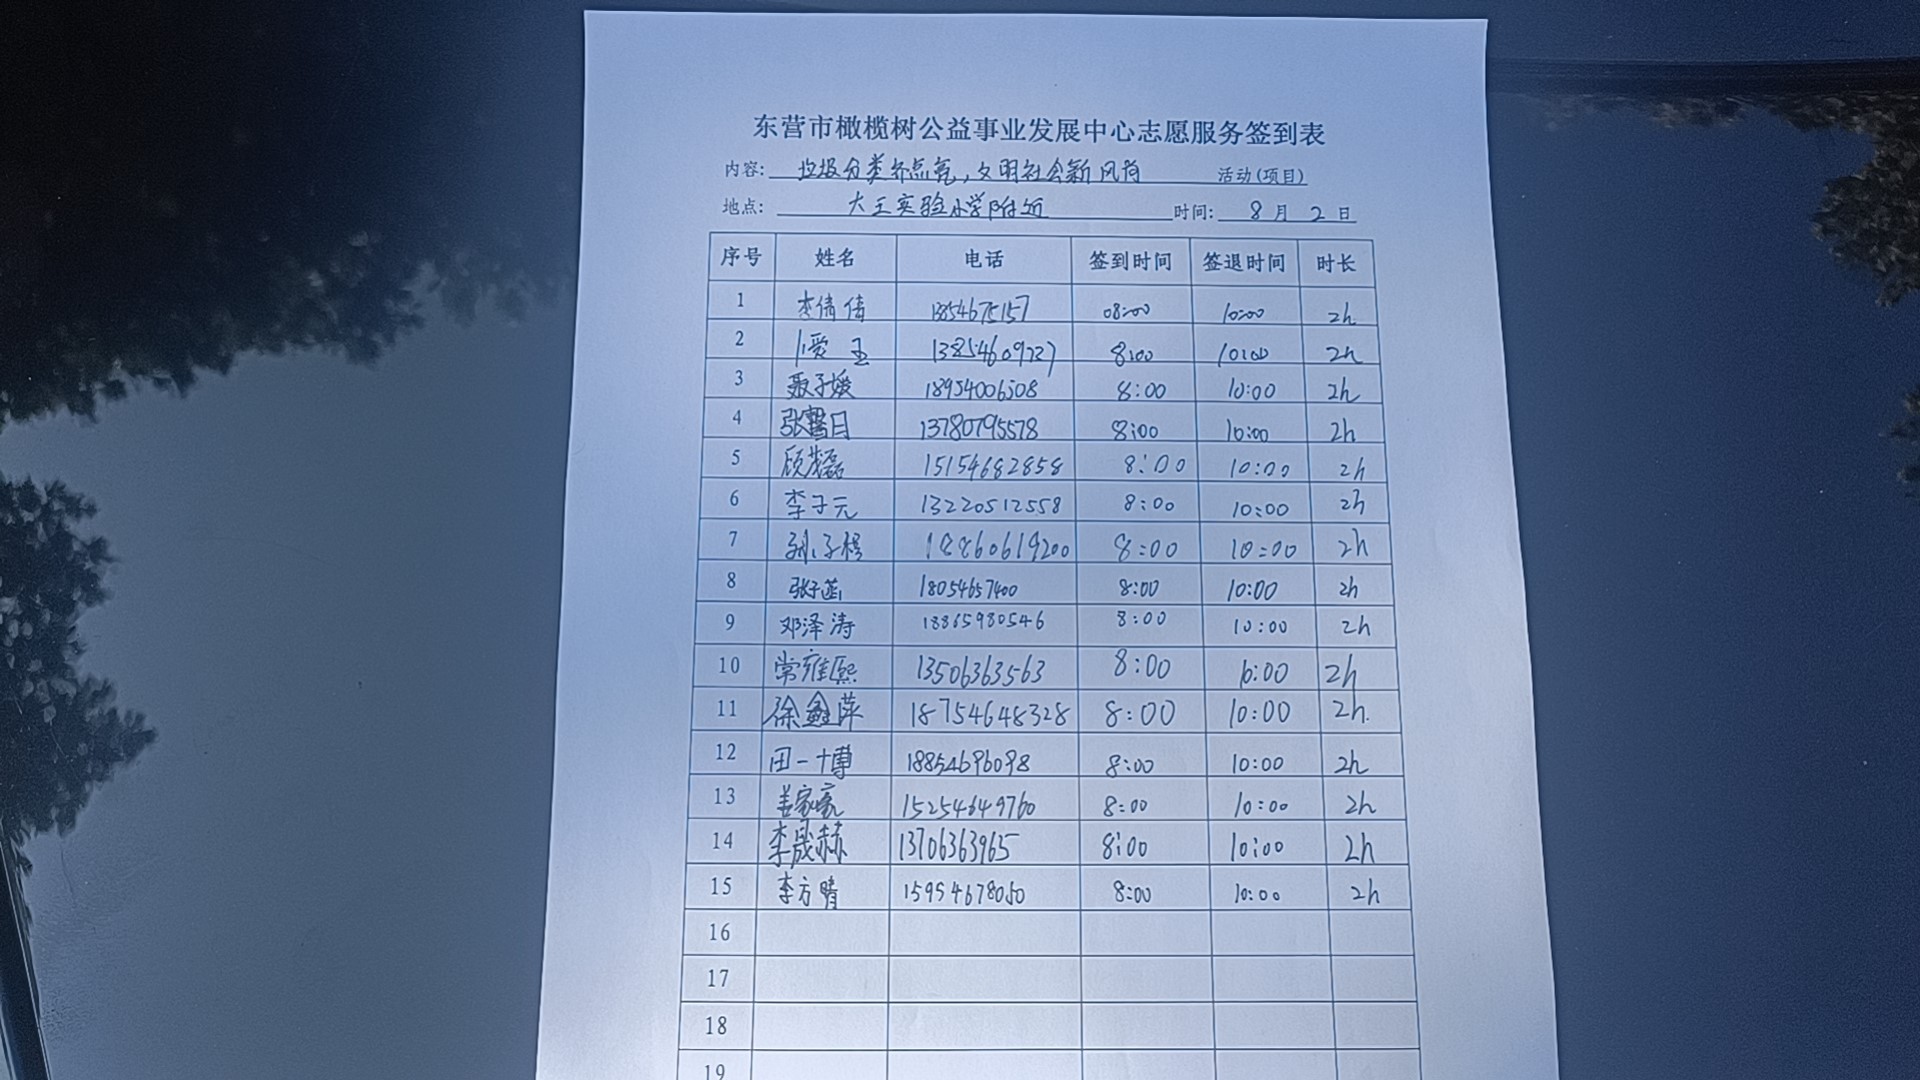 东营市橄榄树公益事业发展中心志愿服务签到表
内容: 垃圾分类齐点亮,文明社会新风尚 活动(项目)
地点: 大王实验小学附近 时间: 8 月 2 日
序号 姓名 电话 签到时间 签退时间 时长
1 李倩倩 13854675157 08:00 10:00 2h
2 13854609727 8:00 10:00 2h
3 聂子媛 18954006508 8:00 10:00 2h
4 13780795578 8:00 10:00 2h
5 顾茂磊 15154682858 8:00 10:00 2h
6 李子元 13220512558 8:00 10:00 2h
7 18860619200 8:00 10:00 2h
8 张子菡 18054657400 8:00 10:00 2h
9 邓泽涛 18865980546 8:00 10:00 2h
10 常雍熙 13506363563 8:00 10:00 2h
11 徐鑫萍 18754648328 8:00 10:00 2h.
12 田一博 18854696098 8:00 10:00 2h
13 姜家豪 15254649760 8:00 10:00 2h
14 李晟赫 13706363965 8:00 10:00 2h
15 李方晴 15954678050 8:00 10:00 2h
16
17
18
19